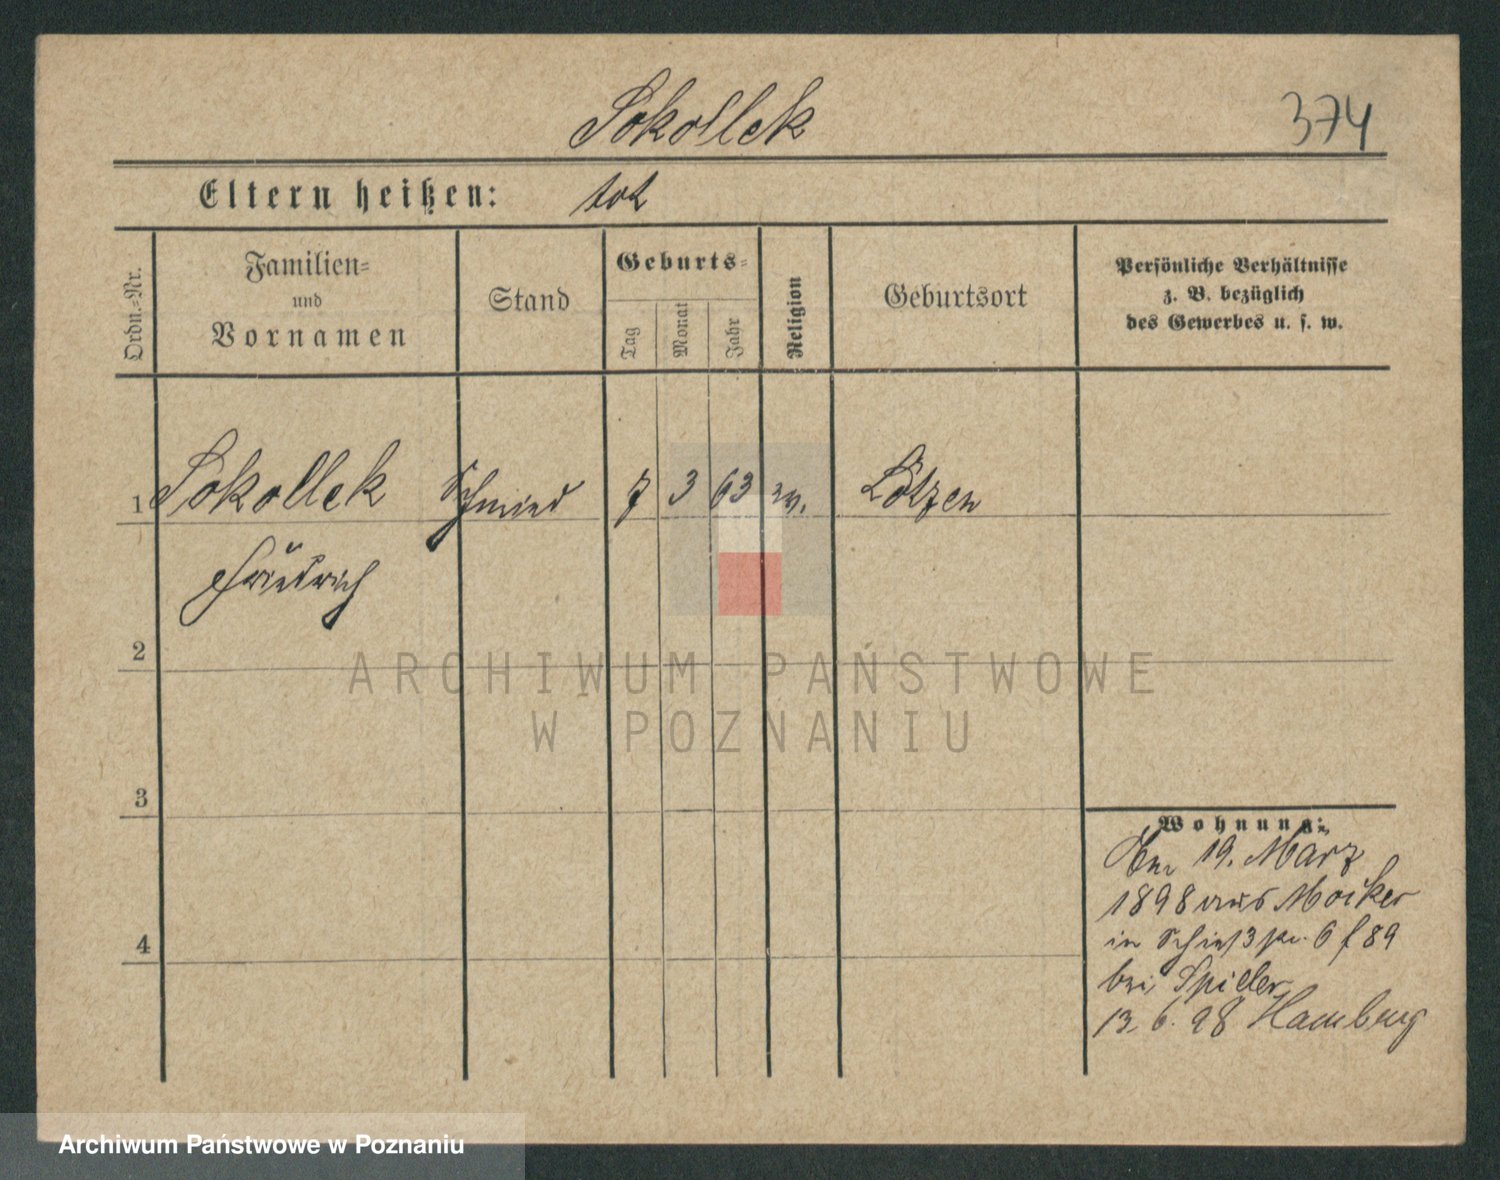 Sokollek
374
Eltern heißen: tot
Ordn.-Nr.
Familien-
und
Vornamen
Stand
Geburts-
Tag
Monat
Jahr
Religion
Geburtsort
Persönliche Verhältnisse
z. B. bezüglich
des Gewerbes u. s. w.
1 Sokollek Schmied 7 3 63 ev. Lötzen
Friedrich
2
ARCHIWUM PAŃSTWOWE
W POZNANIU
3
Wohnung:
Am 19. März
1898 aus Mocker
in 89
bei Spieler
13. 6. 98 Hamburg
4
Archiwum Państwowe w Poznaniu